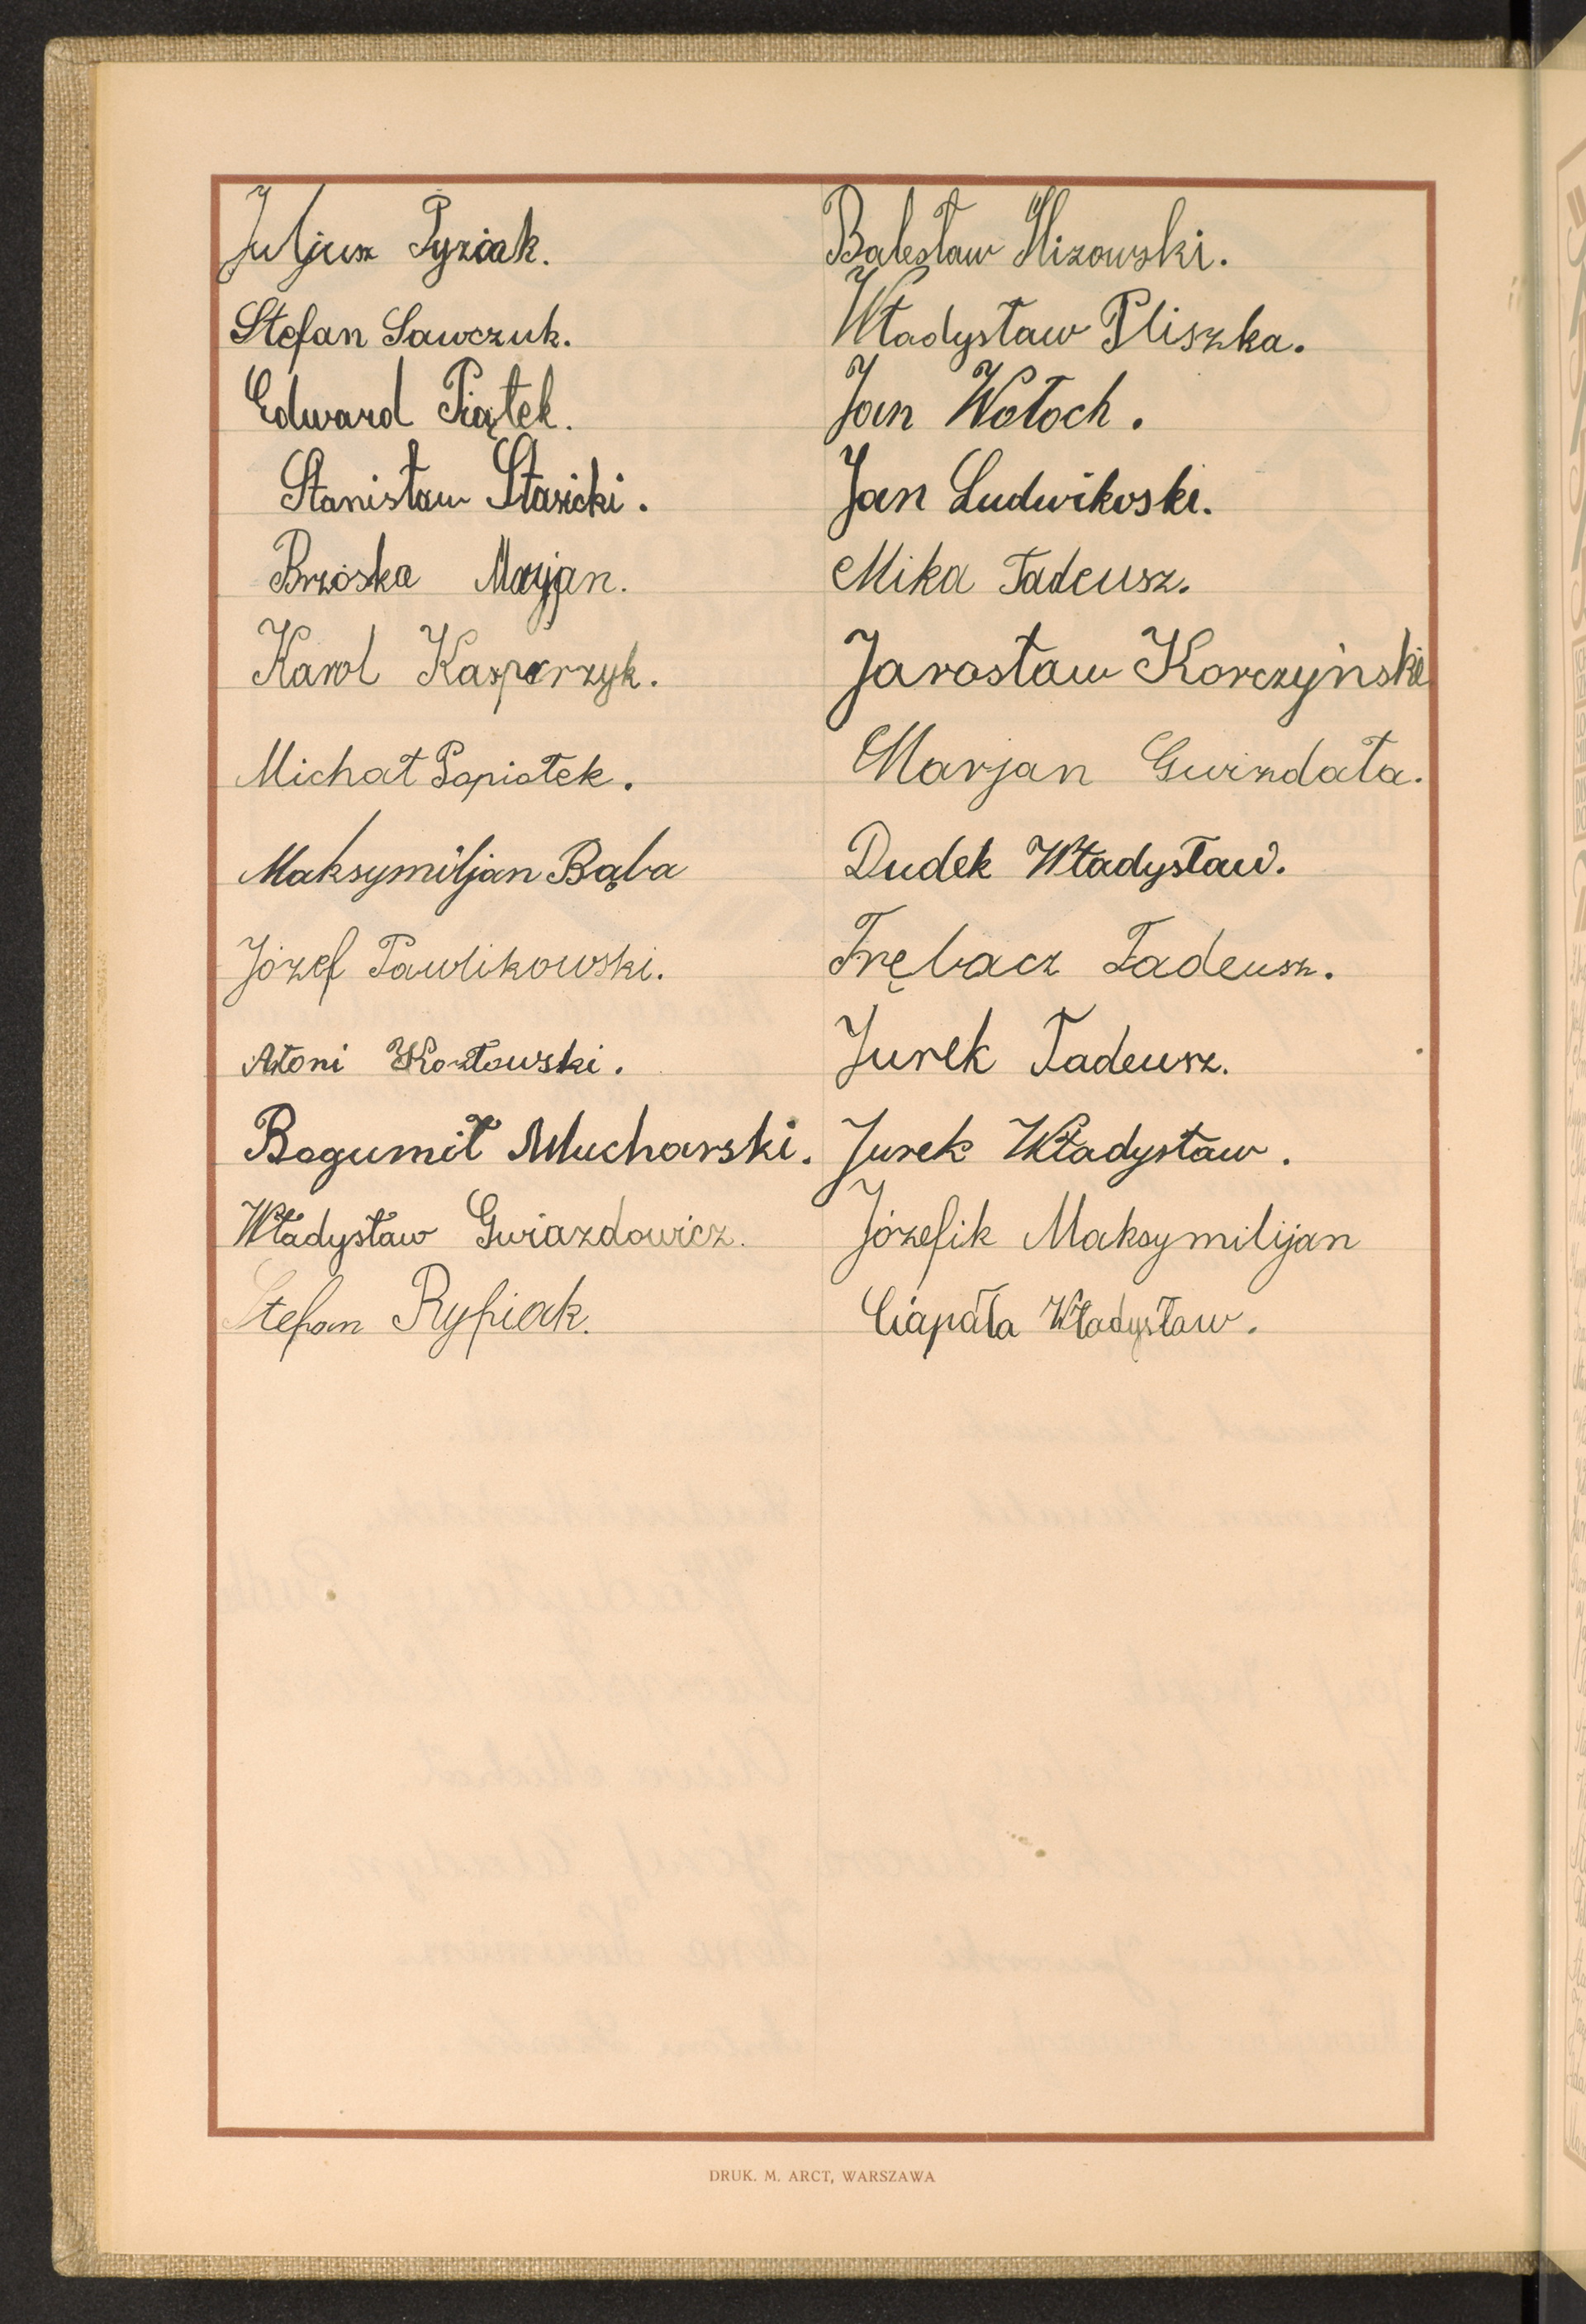 Juljusz Pyziak.
Stefan Sawczuk.
Edward Piątek.
Stanisław Stasicki.
Brzóska Marjan.
Karol Kasparzyk.
Michał Popiołek.
Maksymiljan Bąba
Józef Pawlikowski.
Antoni Kozłowski.
Bogumił Mucharski.
Władysław Gwiazdowicz.
Stefan Rypiak.
Bolesław
Władysław Pliszka.
Jan Wołoch.
Jan Ludwikoski.
Mika Tadeusz.
Jarosław Korczyński
Marjan Gwizdała.
Dudek Władysław.
Trębacz Tadeusz.
Jurek Tadeusz.
Jurek Władysław.
Józefik Maksymilijan
Ciapała Władysław.
DRUK. M. ARCT, WARSZAWA